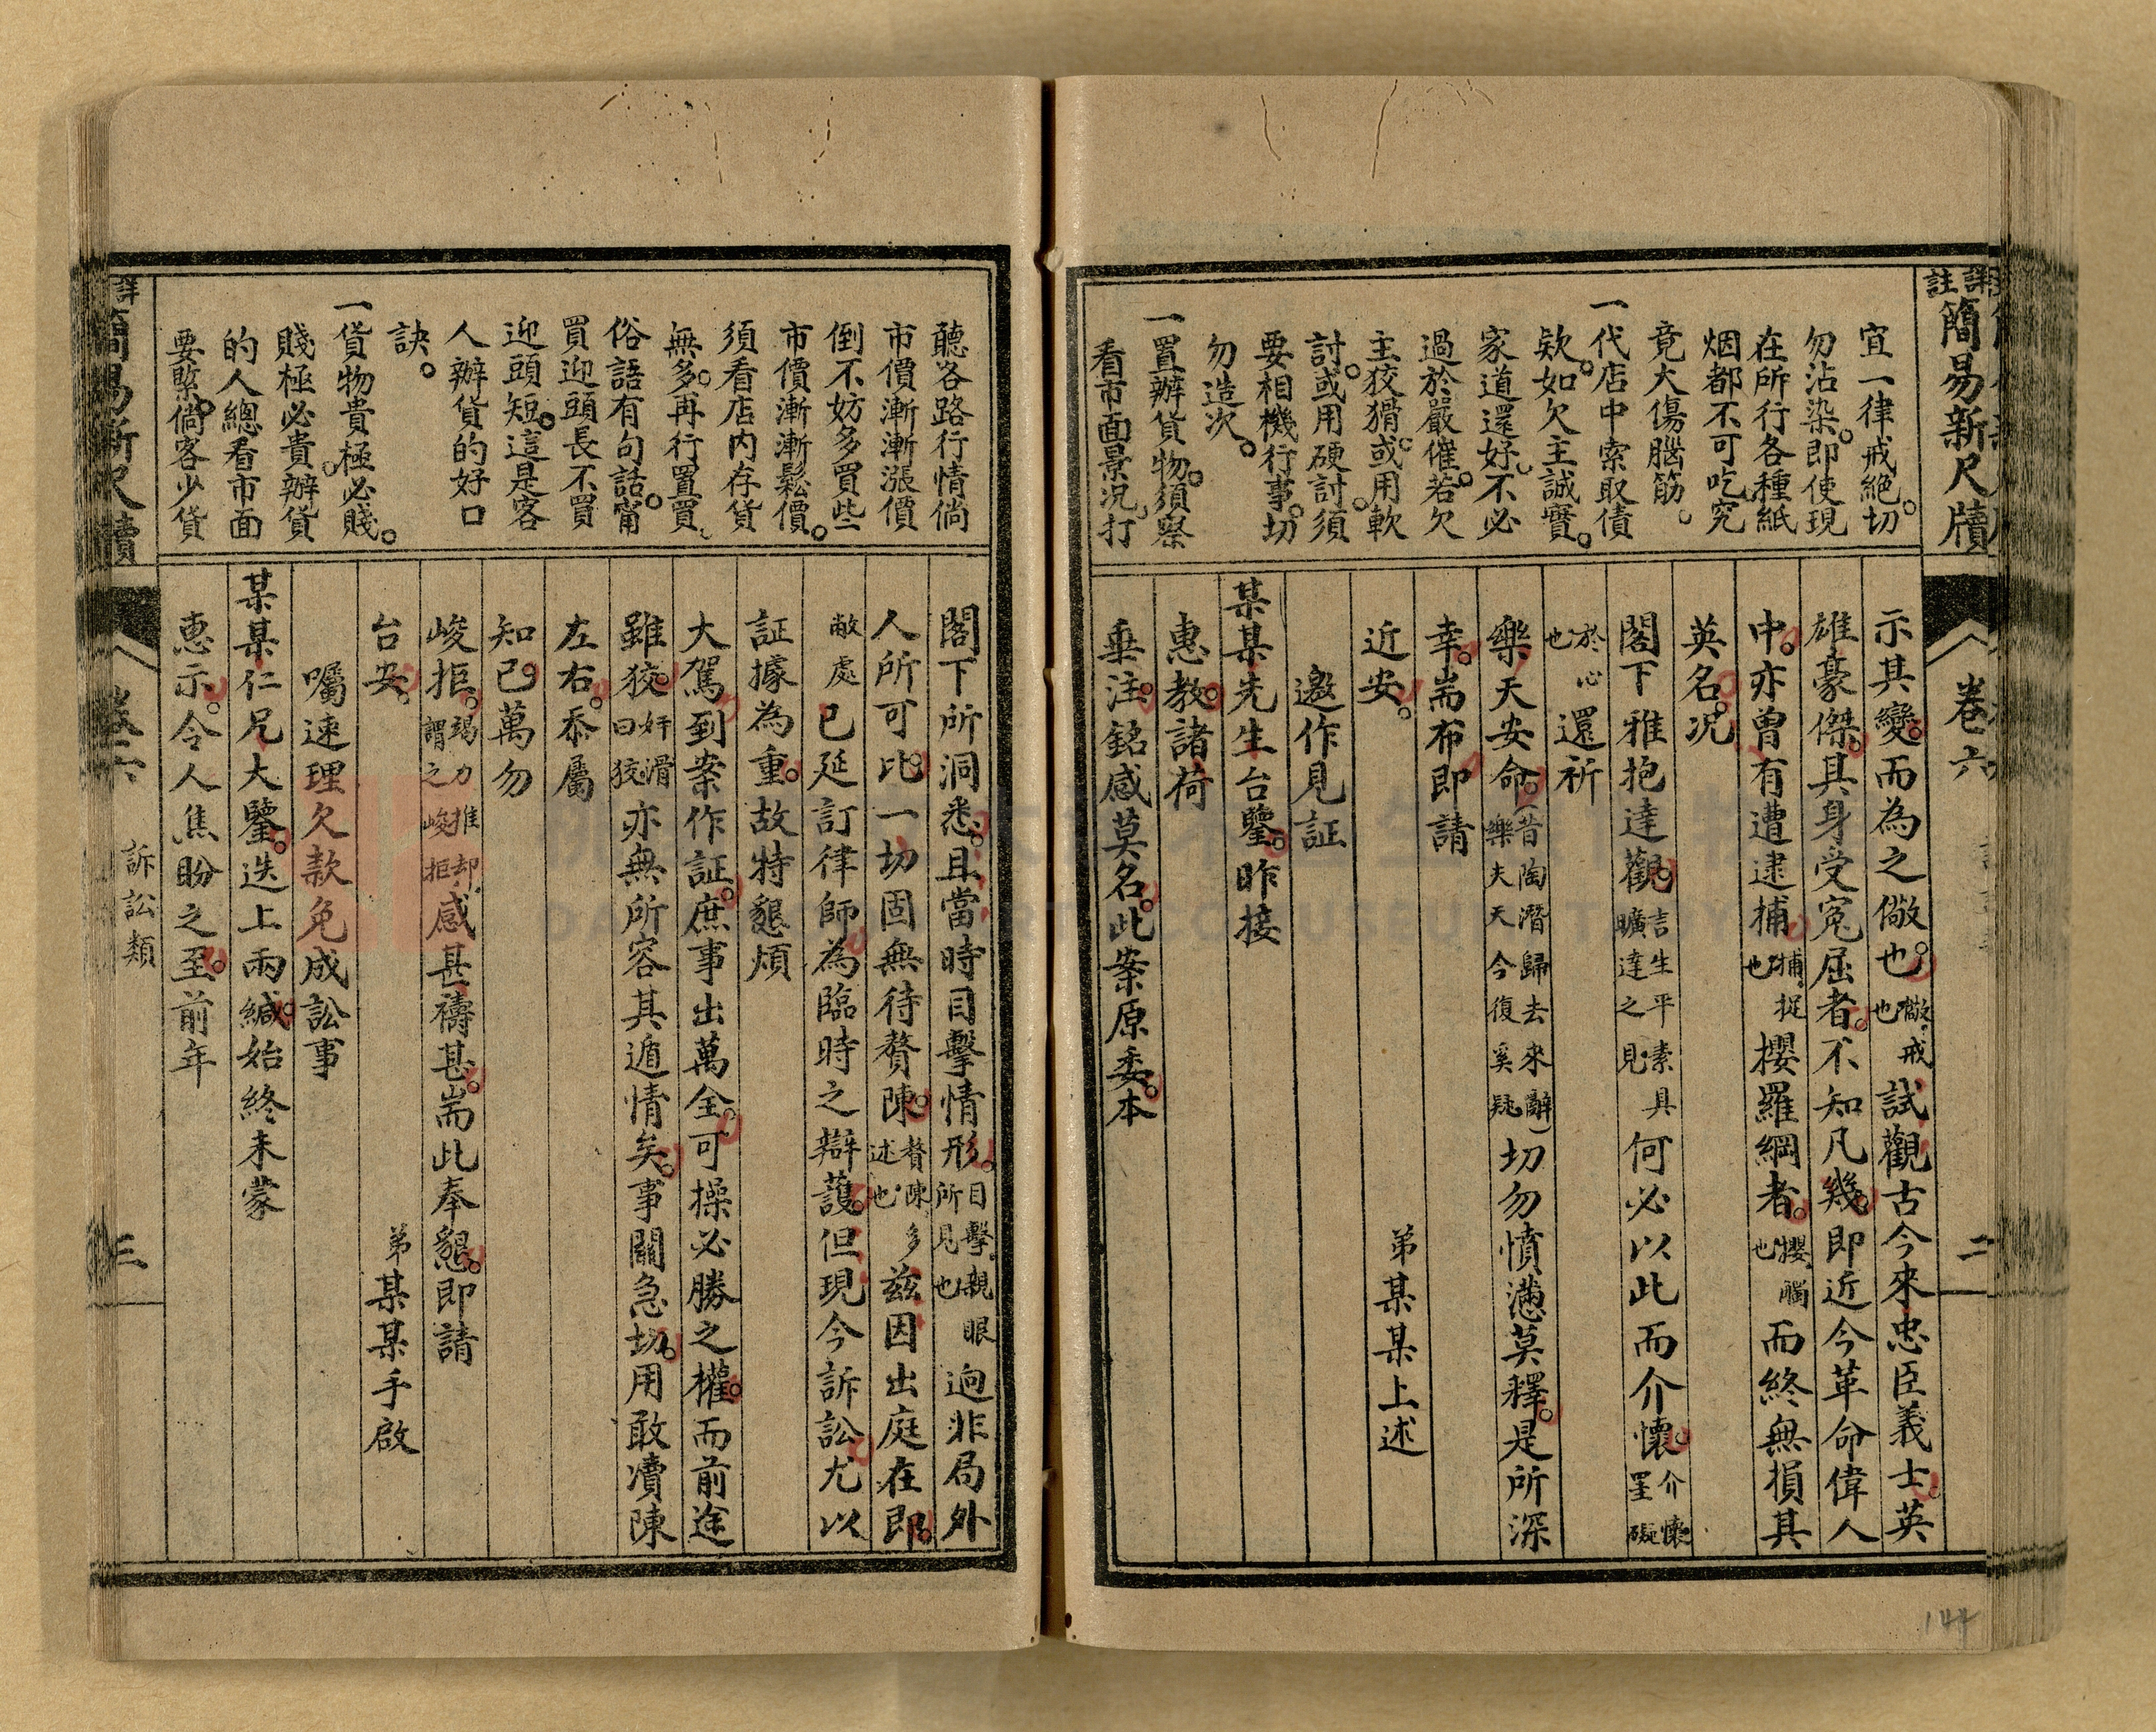 詳註簡易新尺牘
卷六
二
宜一律戒絕。切
勿沾染。即使現
在所行各種紙
烟都不可吃究
竟大傷腦筋。
一代店中索取債
欵。如欠主誠實。
家道還好。不必
過於嚴催。若欠
主狡猾。或用軟
討。或用硬討。須
要相機行事。切
勿造次。
一置辦貨物。須察
看市面景況。打
示其變。而為之儆也。儆、戒也試觀古今來忠臣義士。英
雄豪傑。其身受冤屈者。不知凡幾。即近今革命偉人
中。亦曾有遭逮捕捕、捉也攖羅網者。攖、觸也而終無損其
英名。況
閣下雅抱達觀。言生平素具曠達之見何必以此而介懷介懷罣礙
於心也還祈
樂天安命。(昔陶潛歸去來辭)樂夫天命復奚疑切勿憤懣莫釋。是所深
幸。耑布即請
近安。
弟某某上述
邀作見証
某某先生台鑒。昨接
惠教。諸荷
垂注。銘感莫名。此案原委。本
聽各路行情倘
市價漸漸漲價
倒不妨多買些
市價漸漸鬆價。
須看店內存貨
無多。再行置買。
俗語有句話。甯
買迎頭長不買
迎頭短。這是客
人辦貨的好口
訣。
一貨物貴極必賤。
賤極必貴。辦貨
的人總看市面
要緊。倘客少貨
閣下所洞悉。且當時目擊情形。目擊、親眼所見也逈非局外
人所可比。一切固無待贅陳。贅陳、多述也茲因出庭在即。
敝處已延訂律師為臨時之辯護。但現今訴訟尤以
証據為重。故特懇煩
大駕到案作証。庶事出萬全。可操必勝之權。而前途
雖狡。奸滑曰狡亦無所容其遁情矣。事關急切。用敢凟陳
左右。忝屬
知己。萬勿
峻拒。竭力推却謂之峻拒感甚禱甚。耑此奉懇。即請
台安。
弟某某手啟
囑速理欠款免成訟事
某某仁兄大鑒。迭上兩緘。始終未蒙
惠示。令人焦盼之至。前年
簡易新尺牘
卷六
訴訟類
三
144